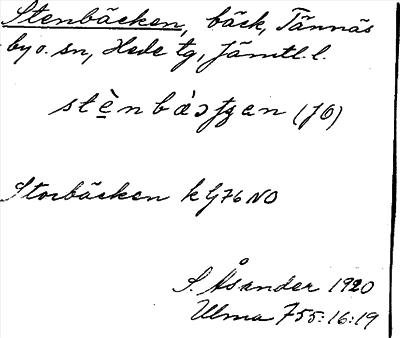 Stenbäcken, bäck, Tännäs
by o. sn, Hede tg, Jämtl. l.
(JÖ)
Storbäcken k G76 NO
S. Åsander 1920
Ulma 755:16:19